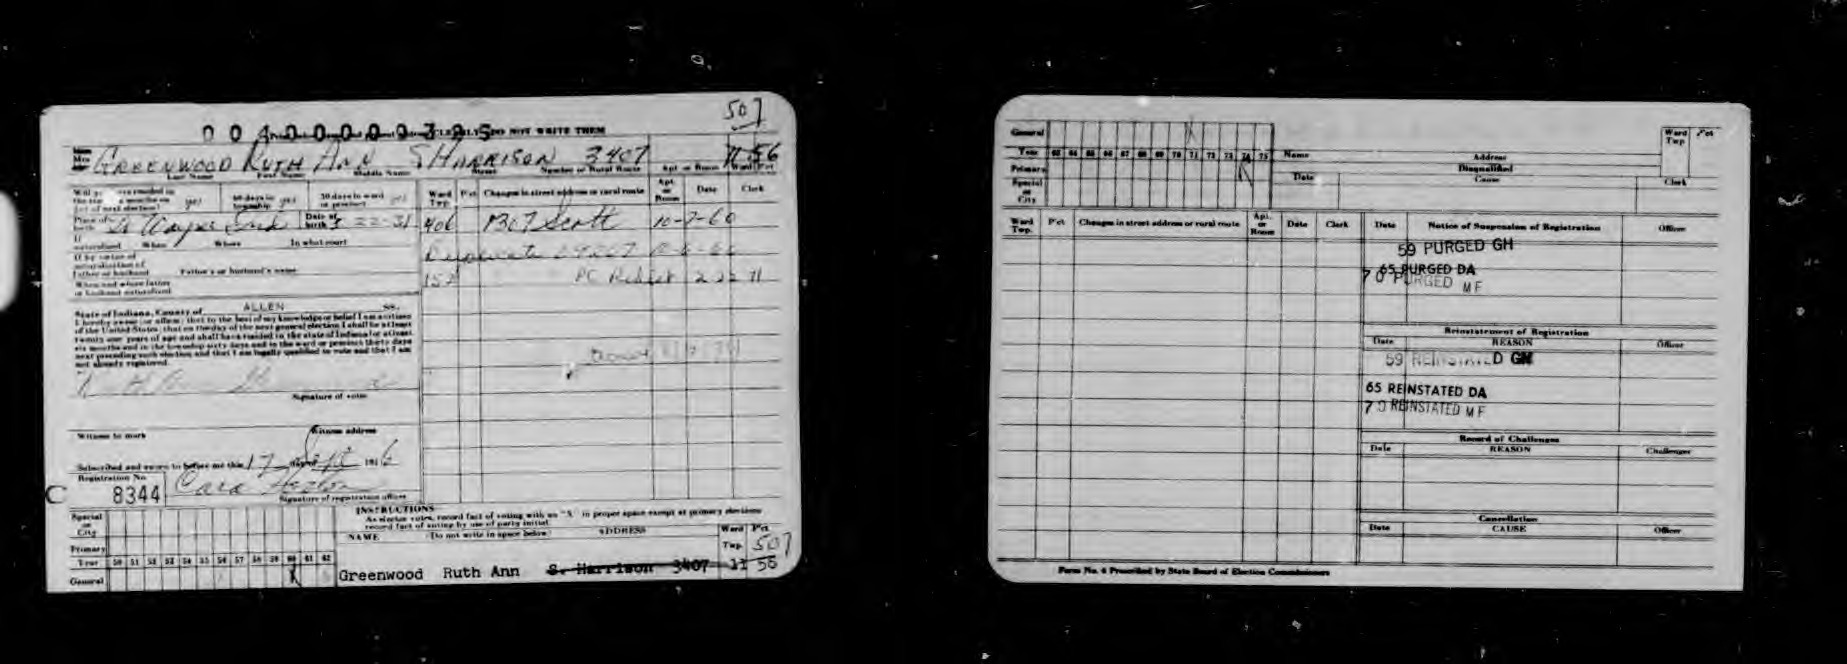 507
0 0 4 0 0 0 0 3 2 5 DO NOT WRITE THEM
GREENWOOD RUTH ANN S HARRISON 3407 11 56
Last Name First Name Middle Name Street Number or Rural Route Apt or Room Ward Pct
60 days in township yes 30 days in ward or precinct yes
Ward Twp. Pct Changes in street address or rural route Apt. or Room Date Clerk
Place of birth Ft Wayne Ind Date of birth 3 22-31
406 1307 Scott 10-7-60
If naturalized When Where In what court
If by virtue of naturalization of father or husband Father's or husband's name
When and where father or husband naturalized
152 PC 2 22 71
State of Indiana, County of ALLEN SS.
I hereby swear (or affirm) that to the best of my knowledge or belief I am a citizen
of the United States; that on the day of the next general election I shall be at least
twenty one years of age and shall have resided in the state of Indiana for at least
six months and in the township sixty days and in the ward or precinct thirty days
next preceding such election and that I am legally qualified to vote and that I am
not already registered.
Signature of voter
Witness to mark Witness address
Subscribed and sworn to before me this 17 day of
Registration No.
C 8344 Cara
Signature of registration officer
INSTRUCTIONS
As elector votes, record fact of voting with an "X" in proper space except at primary elections
record fact of voting by use of party initial.
Special or City
NAME (Do not write in space below) ADDRESS Ward Twp. Pct
507
Primary
Year 50 51 52 53 54 55 56 57 58 59 60 61 62
General
Greenwood Ruth Ann S. Harrison 3407 11 56
General
Year 63 64 65 66 67 68 69 70 71 72 73 74 75
Primary
Special or City
Name Address Ward Twp Pct
Disqualified
Date Cause Clerk
Ward Twp. Pct Changes in street address or rural route Apt. or Room Date Clerk
Date Notice of Suspension of Registration Officer
59 PURGED GH
65 PURGED DA
70 PURGED MF
Reinstatement of Registration
Date REASON Officer
59 REINSTATED GH
65 REINSTATED DA
70 REINSTATED MF
Record of Challenges
Date REASON Challenger
Cancellation
Date CAUSE Officer
Form No. 4 Prescribed by State Board of Election Commissioners